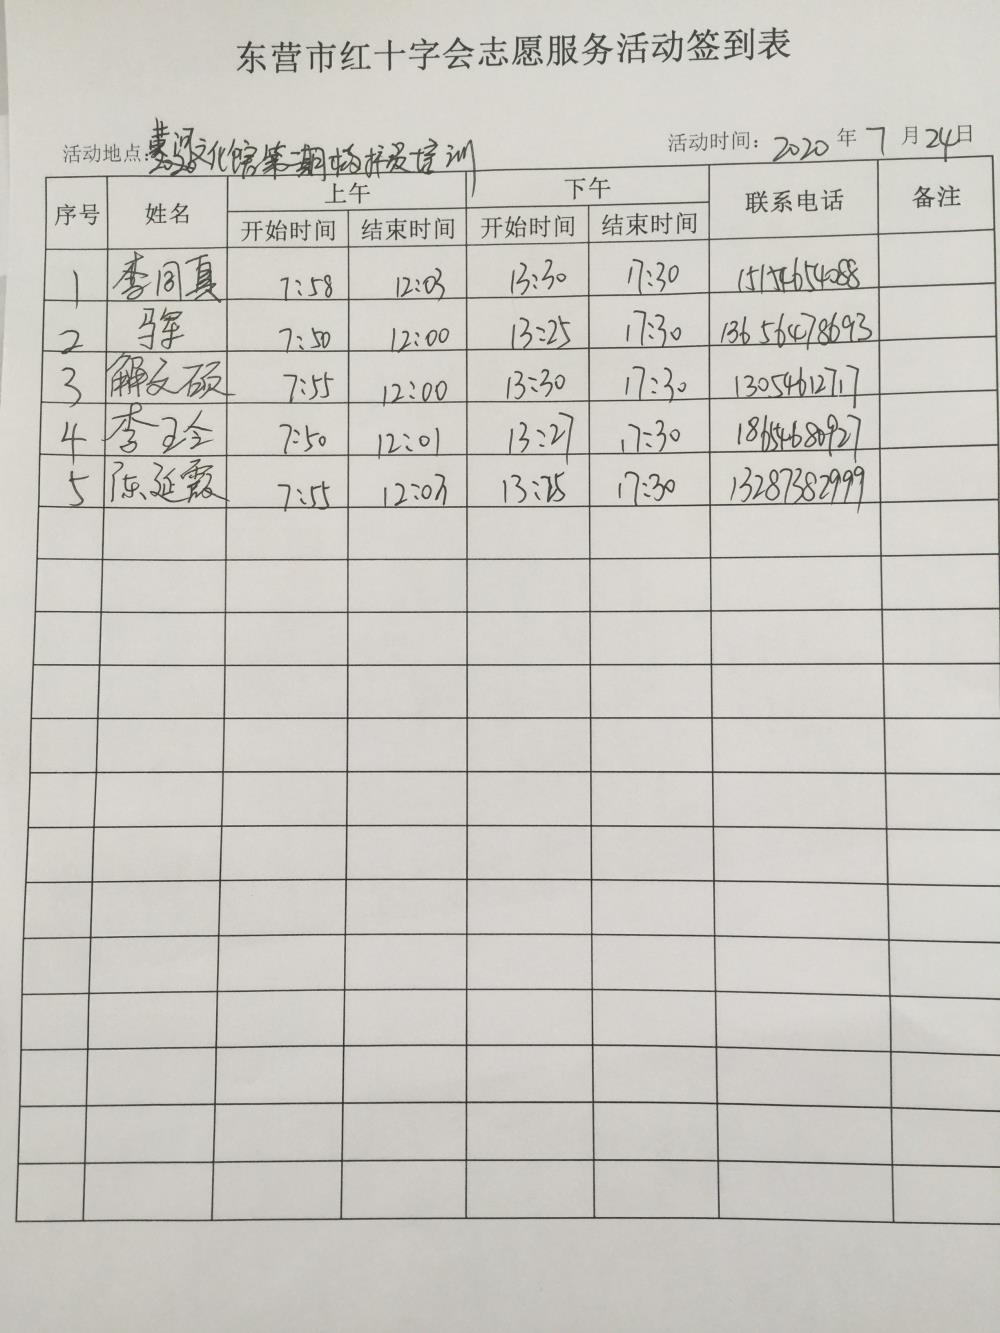 东营市红十字会志愿服务活动签到表
活动地点: 黄河文化馆第一期救护员培训 活动时间: 2020 年 7 月 24 日
序号 姓名 上午 下午 联系电话 备注
开始时间 结束时间 开始时间 结束时间
1 李同真 7:58 12:03 13:30 17:30 15154654088
2 马军 7:50 12:00 13:25 17:30 13656478693
3 解文硕 7:55 12:00 13:30 17:30 13054612717
4 李玉玲 7:50 12:01 13:27 17:30 18654680927
5 陈延霞 7:55 12:03 13:25 17:30 13287382999